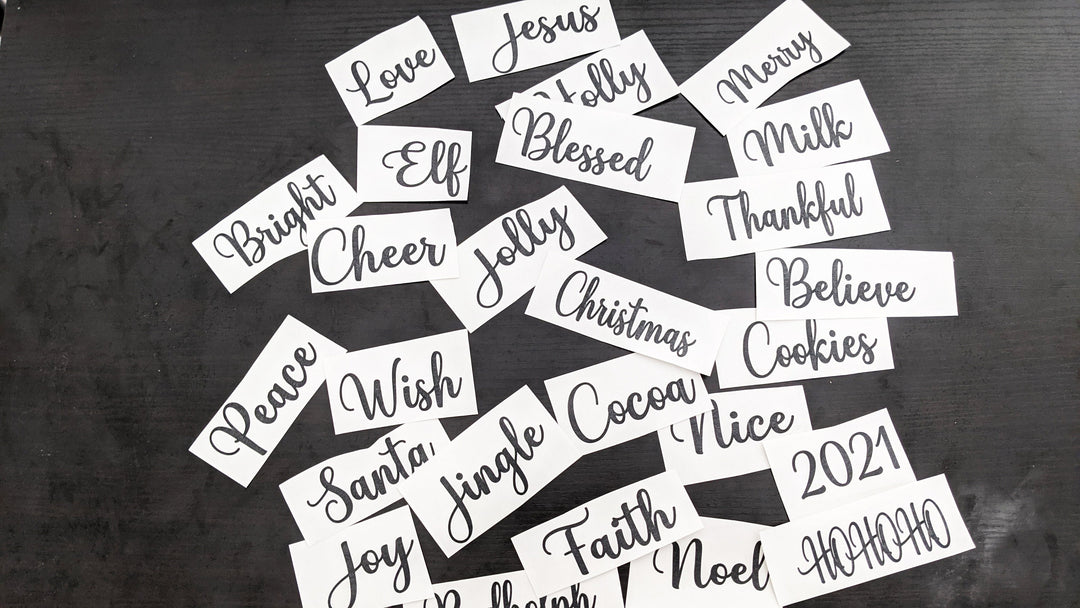 Love
Jesus
Merry
Holly
Blessed
Milk
Elf
Thankful
Bright
Cheer
Jolly
Believe
Christmas
Cookies
Peace
Wish
Cocoa
Nice
Santa
Jingle
2021
Joy
Faith
Noel
HOHOHO